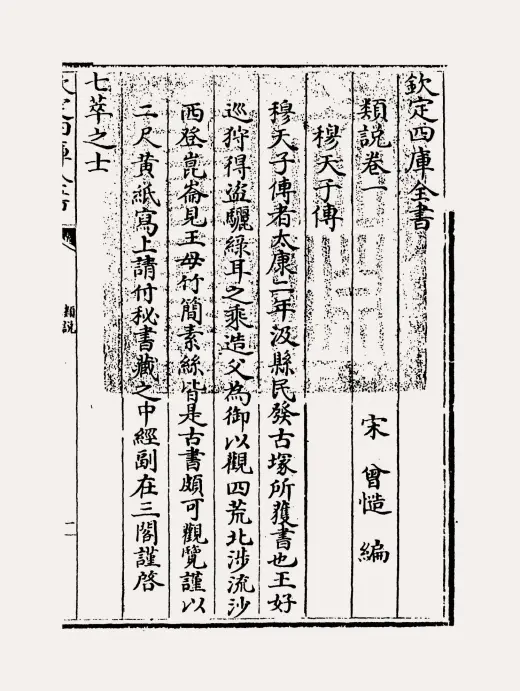 欽定四庫全書
類說卷一
宋 曾慥 編
穆天子傳
穆天子傳者太康二年汲縣民發古塚所獲書也王好
巡狩得盗驪綠耳之乘造父為御以觀四荒北涉流沙
西登崑崙見王母竹簡素絲皆是古書頗可觀覽謹以
二尺黄紙寫上請付秘書藏之中經副在三閣謹啓
七萃之士
欽定四庫全書
類說
一